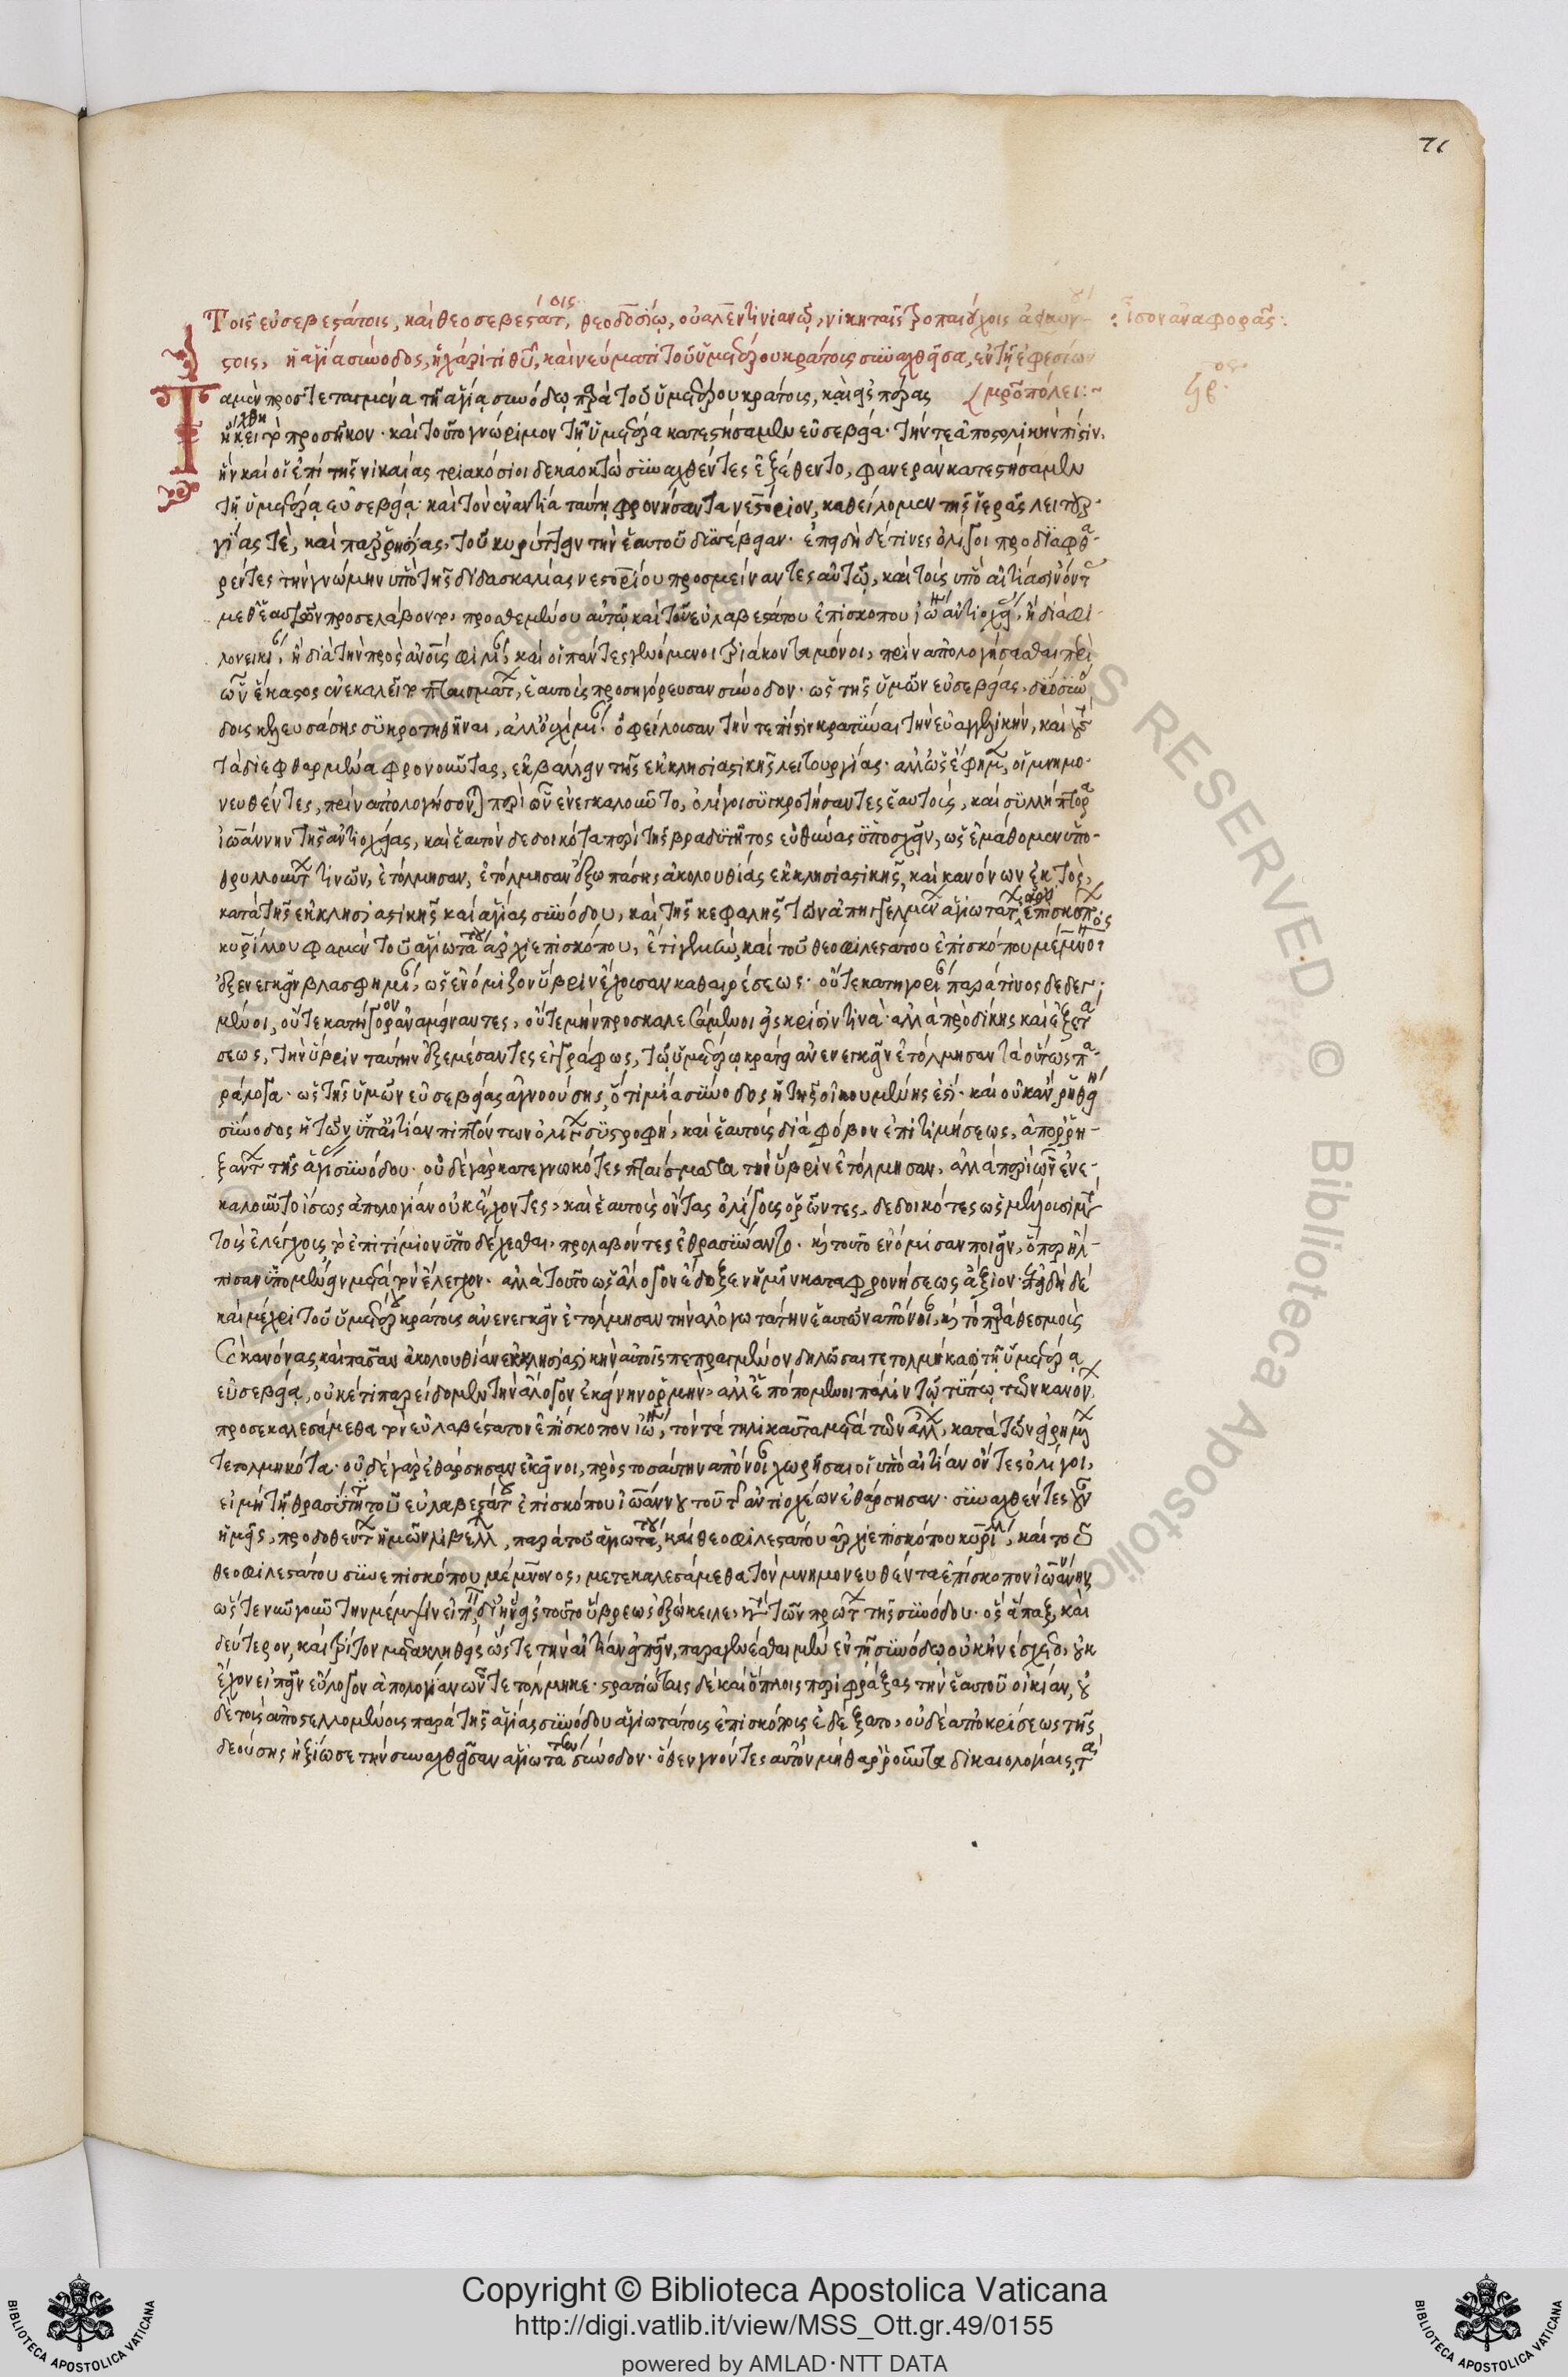 71
Τοῖς εὐσεβεστάτοις, καὶ θεοσεβεστάτ οις, θεοδοσίω, οὐαλεντινιανῶ, νικηταῖς τροπαιούχοις ἀειαυγ- : ἴσον ἀναφορᾶς :
στοις, ἡ ἁγία σύνοδος, ἡ χάριτι θῦ, καὶ νεύματι τοῦ ὑμετέρου κράτους συναχθεῖσα, ἐν τῆ ἐφεσίων
Τὰ μὲν προστεταγμένα τῆ ἁγία συνόδω παρὰ τοῦ ὑμετέρου κράτους, καὶ εἰς πέρας μροπόλει :~
ἤχθη κατὰ τὸ προσῆκον · καὶ τοῦτο γνώριμον τῆ ὑμετέρα κατεστήσαμεν εὐσεβεία · τήν τε ἀποστολικὴν πίστιν,
ἣν καὶ οἱ ἐπὶ τῆς νικαίας τριακόσιοι δεκαοκτὼ συναχθέντες ἐξέθεντο, φανερὰν κατεστήσαμεν
τῆ ὑμετέρα εὐσεβεία · καὶ τὸν ἐναντία ταύτη φρονήσαντα νεστόριον, καθείλομεν τῆς ἱερᾶς λειτουρ-
γίας τὲ, καὶ παρρησίας, τοῦ κηρύττειν τὴν ἑαυτοῦ δυσσέβειαν · ἐπειδὴ δέ τινες ὀλίγοι προδιαφθα-
ρέντες τὴν γνώμην ὑπὸ τῆς διδασκαλίας νεστορίου προσμείναντες αὐτῶ, καὶ τοῖς ὑπὸ αἰτίασιν ὄντας
μεθ' ἑαυτῶν προσελάβοντο, προθεμένου αὐτῶ καὶ τοῦ εὐλαβεστάτου ἐπισκόπου ἰω ἀντιοχεί, ἢ διὰ φι-
λονεικί, ἢ διὰ τὴν πρὸς φιλί, καὶ οἱ πάντες γενόμενοι τριάκοντα μόνοι, πρὶν ἀπολογήσασθαι περὶ
ὧν ἕκαστος ἐνεκαλεῖτο πταισμάτ, ἑαυτοὺς προσηγόρευσαν σύνοδον · ὡς τῆς ὑμῶν εὐσεβείας, δύο συνό-
δοις κελευσάσης συγκροτηθῆναι, ἀλλ' οὐχὶ μί ὀφείλουσαν τήν τε πίστιν κρατύναι τὴν εὐαγγελικὴν, καὶ τοὺς
τὰ διεφθαρμένα φρονοῦντας, ἐκβάλλειν τῆς ἐκκλησιαστικῆς λειτουργίας · ἀλλ' ὡς ἔφημ, οἱ μνημο-
νευθέντες, πρὶν ἀπολογήσονται περὶ ὧν ἐνεκαλοῦντο, ὀλίγοι συγκροτήσαντες ἑαυτοὺς, καὶ συλλήπτορα
ἰωάννην τῆς ἀντιοχείας, καὶ ἑαυτὸν δεδοικότα περὶ τῆς βραδυτῆτος εὐθύνας ὑποσχεῖν, ὡς ἐμάθομεν ὑπο-
θρυλλούντ τινῶν, ἐτόλμησαν, ἐτόλμησαν ἔξω πάσης ἀκολουθίας ἐκκλησιαστικῆς, καὶ κανόνων ἐκτὸς,
κατὰ τῆς ἐκκλησιαστικῆς καὶ ἁγίας συνόδου, καὶ τῆς κεφαλῆς τῶν ἀπηγγελμέν ἁγιωτάτ ἐπισκόπ
κυρίλλου φαμὲν τοῦ ἁγιωτά του ἀρχιεπισκόπου, ἔτι γε μὴν, καὶ τοῦ θεοφιλεστάτου ἐπισκόπου μέμνονος
ἐξενεγκεῖν βλασφημί, ὡς ἐνόμιζον ὕβριν ἔχουσαν καθαιρέσεως · οὔτε κατηγορί παρά τινος δεδεγ-
μένοι, οὔτε κατήγορον ἀναμείναντες, οὔτε μὴν προσκαλεσάμενοι εἰς κρίσιν τινὰ · ἀλλὰ πρὸ δίκης καὶ ἐξετά-
σεως, τὴν ὕβριν ταύτην ἐξεμέσαντες ἐγγράφως, τῶ ὑμετέρω κράτει ἀνενεγκεῖν ἐτόλμησαν τὰ οὕτως πα-
ράλογα · ὡς τῆς ὑμῶν εὐσεβείας ἀγνοούσης, ὅτι μία σύνοδος ἡ τῆς οἰκουμένης ἐστί · καὶ οὐκ ἂν ῥηθείη
σύνοδος ἡ τῶν ὑπ' αἰτίαν πιπτόντων ὀλίγ συστροφή, καὶ ἑαυτοὺς διὰ φόβον ἐπιτιμήσεως, ἀπορρη-
ξάντ τῆς ἁγί συνόδου · οὐδὲ γὰρ κατεγνωκότες πταίσματα τὴν ὕβριν ἐτόλμησαν, ἀλλὰ περὶ ὧν ἐνε-
καλοῦντο ἴσως ἀπολογίαν οὐκ ἔχοντες, καὶ ἑαυτοὺς ὄντας ὀλίγους ὁρῶντες, δεδοικότες ὡς μέλλουσι μετὰ
τοὺς ἐλέγχους τὸ ἐπιτίμιον ὑποδέχεσθαι, προλαβόντες ἐθρασύναντο · καὶ τοῦτο ἐνόμισαν ποιεῖν, ὅπερ ἤλ-
πισαν ὑπομένειν μετὰ τὸν ἔλεγχον · ἀλλὰ τοῦτο ὡς ἄλογον ἔδοξεν ἡμῖν καταφρονήσεως ἄξιον · ἐπειδὴ δὲ
καὶ μέχρι τοῦ ὑμετέρου κράτους ἀνενεγκεῖν ἐτόλμησαν τὴν ἀλογωτάτην ἑαυτῶν ἀπόνοι, καὶ τὸ παρὰ θεσμοὺς
καὶ κανόνας, καὶ πᾶσαν ἀκολουθίαν ἐκκλησιαστικὴν αὐτοῖς πεπραγμένον δηλῶσαι τετολμήκασι τῆ ὑμετέρα
εὐσεβεία, οὐκέτι παρείδομεν τὴν ἄλογον ἐκείνην ὁρμὴν, ἀλλ' ἑπόμενοι πάλιν τῶ τύπω τῶν κανόν,
προσεκαλεσάμεθα τὸν εὐλαβέστατον ἐπίσκοπον ἰω, τὸν τὰ τηλικαῦτα μετὰ τῶν ἄλλ, κατὰ τῶν εἰρημ
τετολμηκότα · οὐδὲ γὰρ ἐθάρσησαν ἐκεῖνοι, πρὸς τοσαύτην ἀπόνοι χωρῆσαι οἱ ὑπὸ αἰτίαν ὄντες ὀλίγοι,
εἰ μὴ τῆ θρασύτητι τοῦ εὐλαβεστάτου ἐπισκόπου ἰωάννου τοῦ τῶν ἀντιοχέων ἐθάρσησαν · συναχθέντες οὖν
ἡμεῖς, προδοθέντ ἡμῶν λιβέλλ, παρὰ τοῦ ἁγιωτά του, καὶ θεοφιλεστάτου ἀρχιεπισκόπου κυρίλλ, καὶ τοῦ
θεοφιλεστάτου συνεπισκόπου μέμνονος, μετεκαλεσάμεθα τὸν μνημονευθέντα ἐπίσκοπον ἰωάννην
ὥστε νουνοῦν τὴν μέμψιν εἰπ, δι' ἣν εἰς τοῦτο ὕβρεως ἐξώκειλε, κατὰ τῶν πρώτ τῆς συνόδου · ὃς ἅπαξ, καὶ
δεύτερον, καὶ τρίτον μετακληθεὶς ὥστε τὴν αἰτίαν εἰπεῖν, παραγενέσθαι μὲν ἐν τῆ συνόδω οὐκ ἠνέσχετο, οὐκ
ἔχον εἰπεῖν εὔλογον ἀπολογίαν ὧν τετόλμηκε · στρατιώταις δὲ καὶ ὅπλοις περιφράξας τὴν ἑαυτοῦ οἰκίαν, οὐ
δὲ τοὺς ἀποστελλομένους παρὰ τῆς ἁγίας συνόδου ἁγιωτάτους ἐπισκόπους ἐδέξατο, οὐδὲ ἀποκρίσεως τῆς
δεούσης ἠξίωσε τὴν συναχθεῖσαν ἁγιωτά την σύνοδον · ὅθεν γνόντες αὐτὸν μὴ θαρροῦντα δικαιολογίαις, τὰ
Copyright © Biblioteca Apostolica Vaticana
http://digi.vatlib.it/view/MSS_Ott.gr.49/0155
powered by AMLAD·NTT DATA
BIBLIOTECA APOSTOLICA VATICANA
BIBLIOTECA APOSTOLICA VATICANA